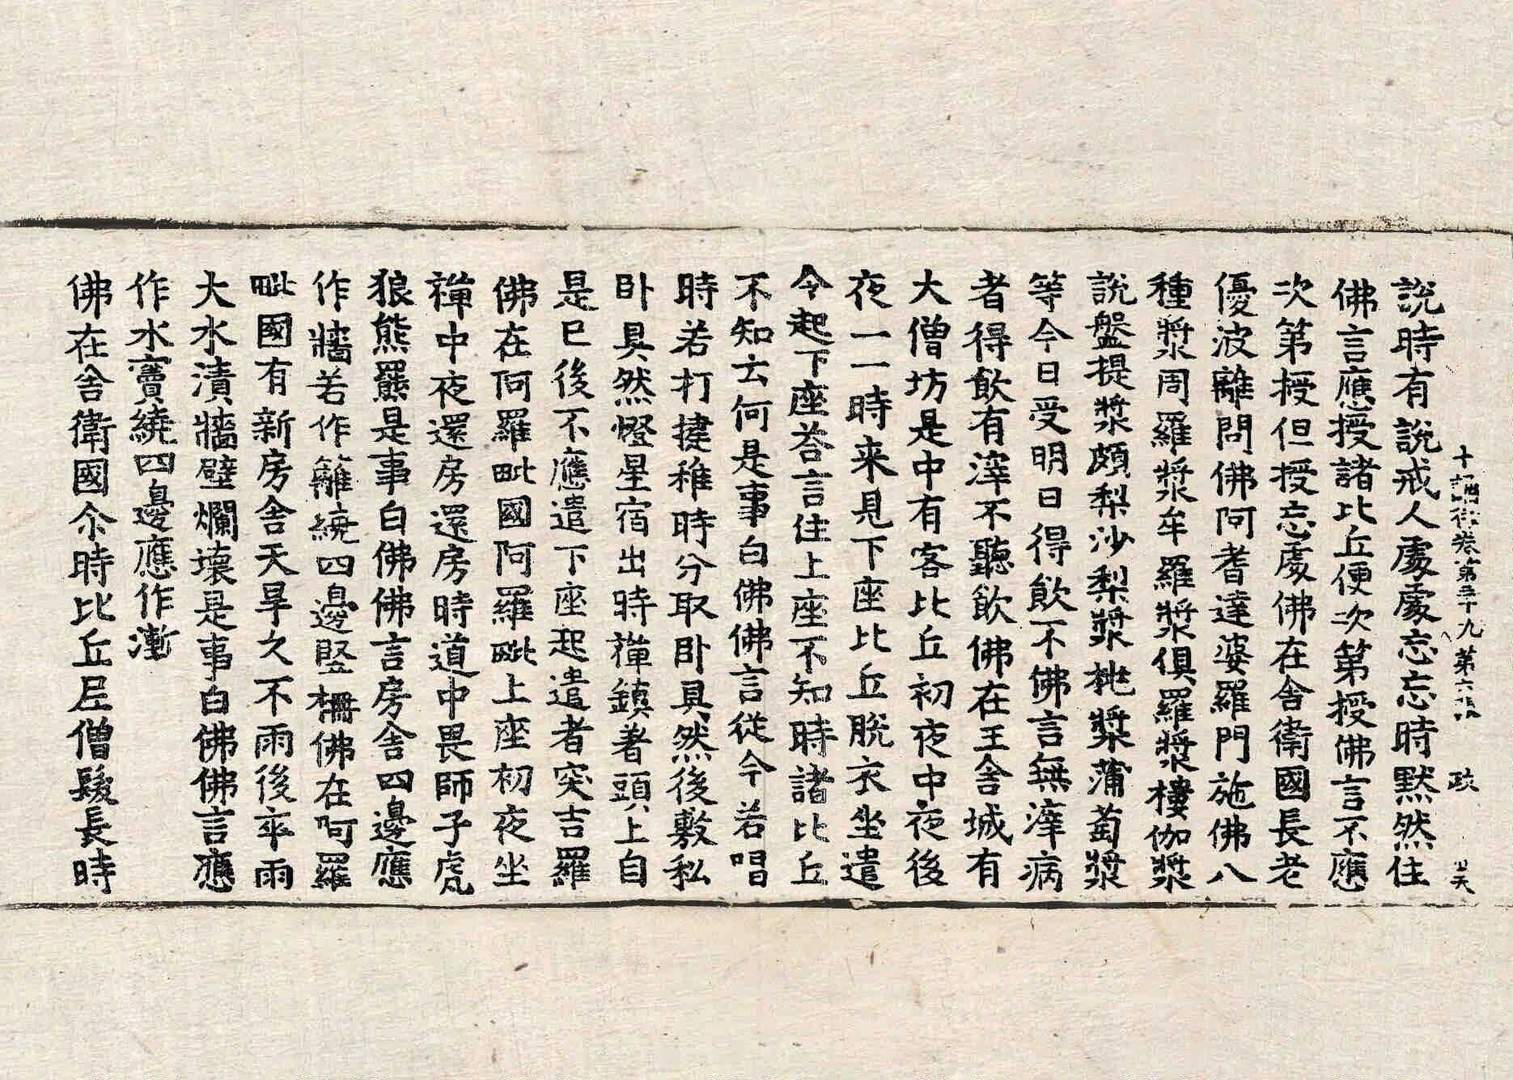 十誦律卷第五十九 第六張 政
說時有說戒人處處忘忘時黙然住
佛言應授諸比丘便次第授佛言不應
次第授但授忘處佛在舍衛國長老
優波離問佛阿耆達婆羅門施佛八
種漿周羅漿牟羅漿俱羅漿樓伽漿
說盤提漿頗梨沙梨漿桃漿蒲萄漿
等今日受明日得飲不佛言無滓病
者得飲有滓不聽飲佛在王舍城有
大僧坊是中有客比丘初夜中夜後
夜一一時来見下座比丘脫衣坐遣
令起下座荅言住上座不知時諸比丘
不知云何是事白佛佛言從今若唱
時若打揵稚時分取卧具然後敷私
卧具然燈星宿出時禪鎮著頭上自
是已後不應遣下座起遣者突吉羅
佛在阿羅毗國阿羅毗上座初夜坐
禪中夜還房還房時道中畏師子虎
狼熊羆是事白佛佛言房舍四邊應
作牆若作籬繞四邊竪柵佛在阿羅
毗國有新房舍天旱久不雨後卒雨
大水漬牆壁爛壞是事白佛佛言應
作水竇繞四邊應作漸
佛在舍衛國尒時比丘尼僧髮長時